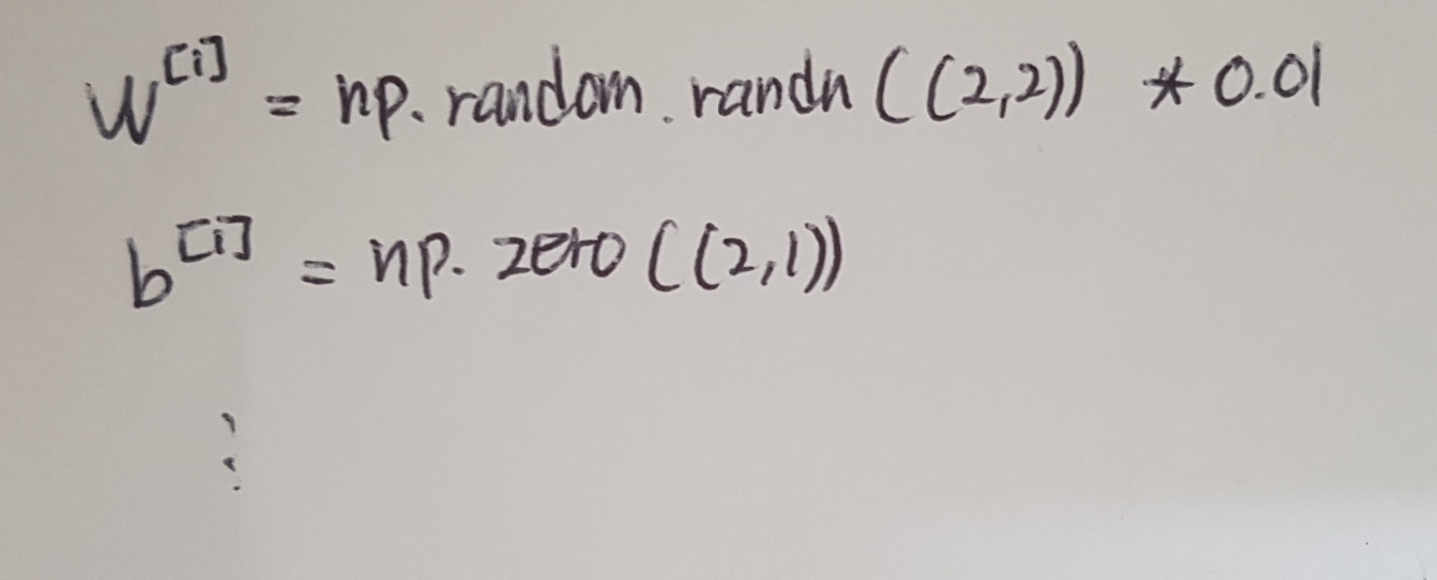 W^[i] = np.random.randn((2,2)) * 0.01
b^[i] = np.zero((2,1))
⋮